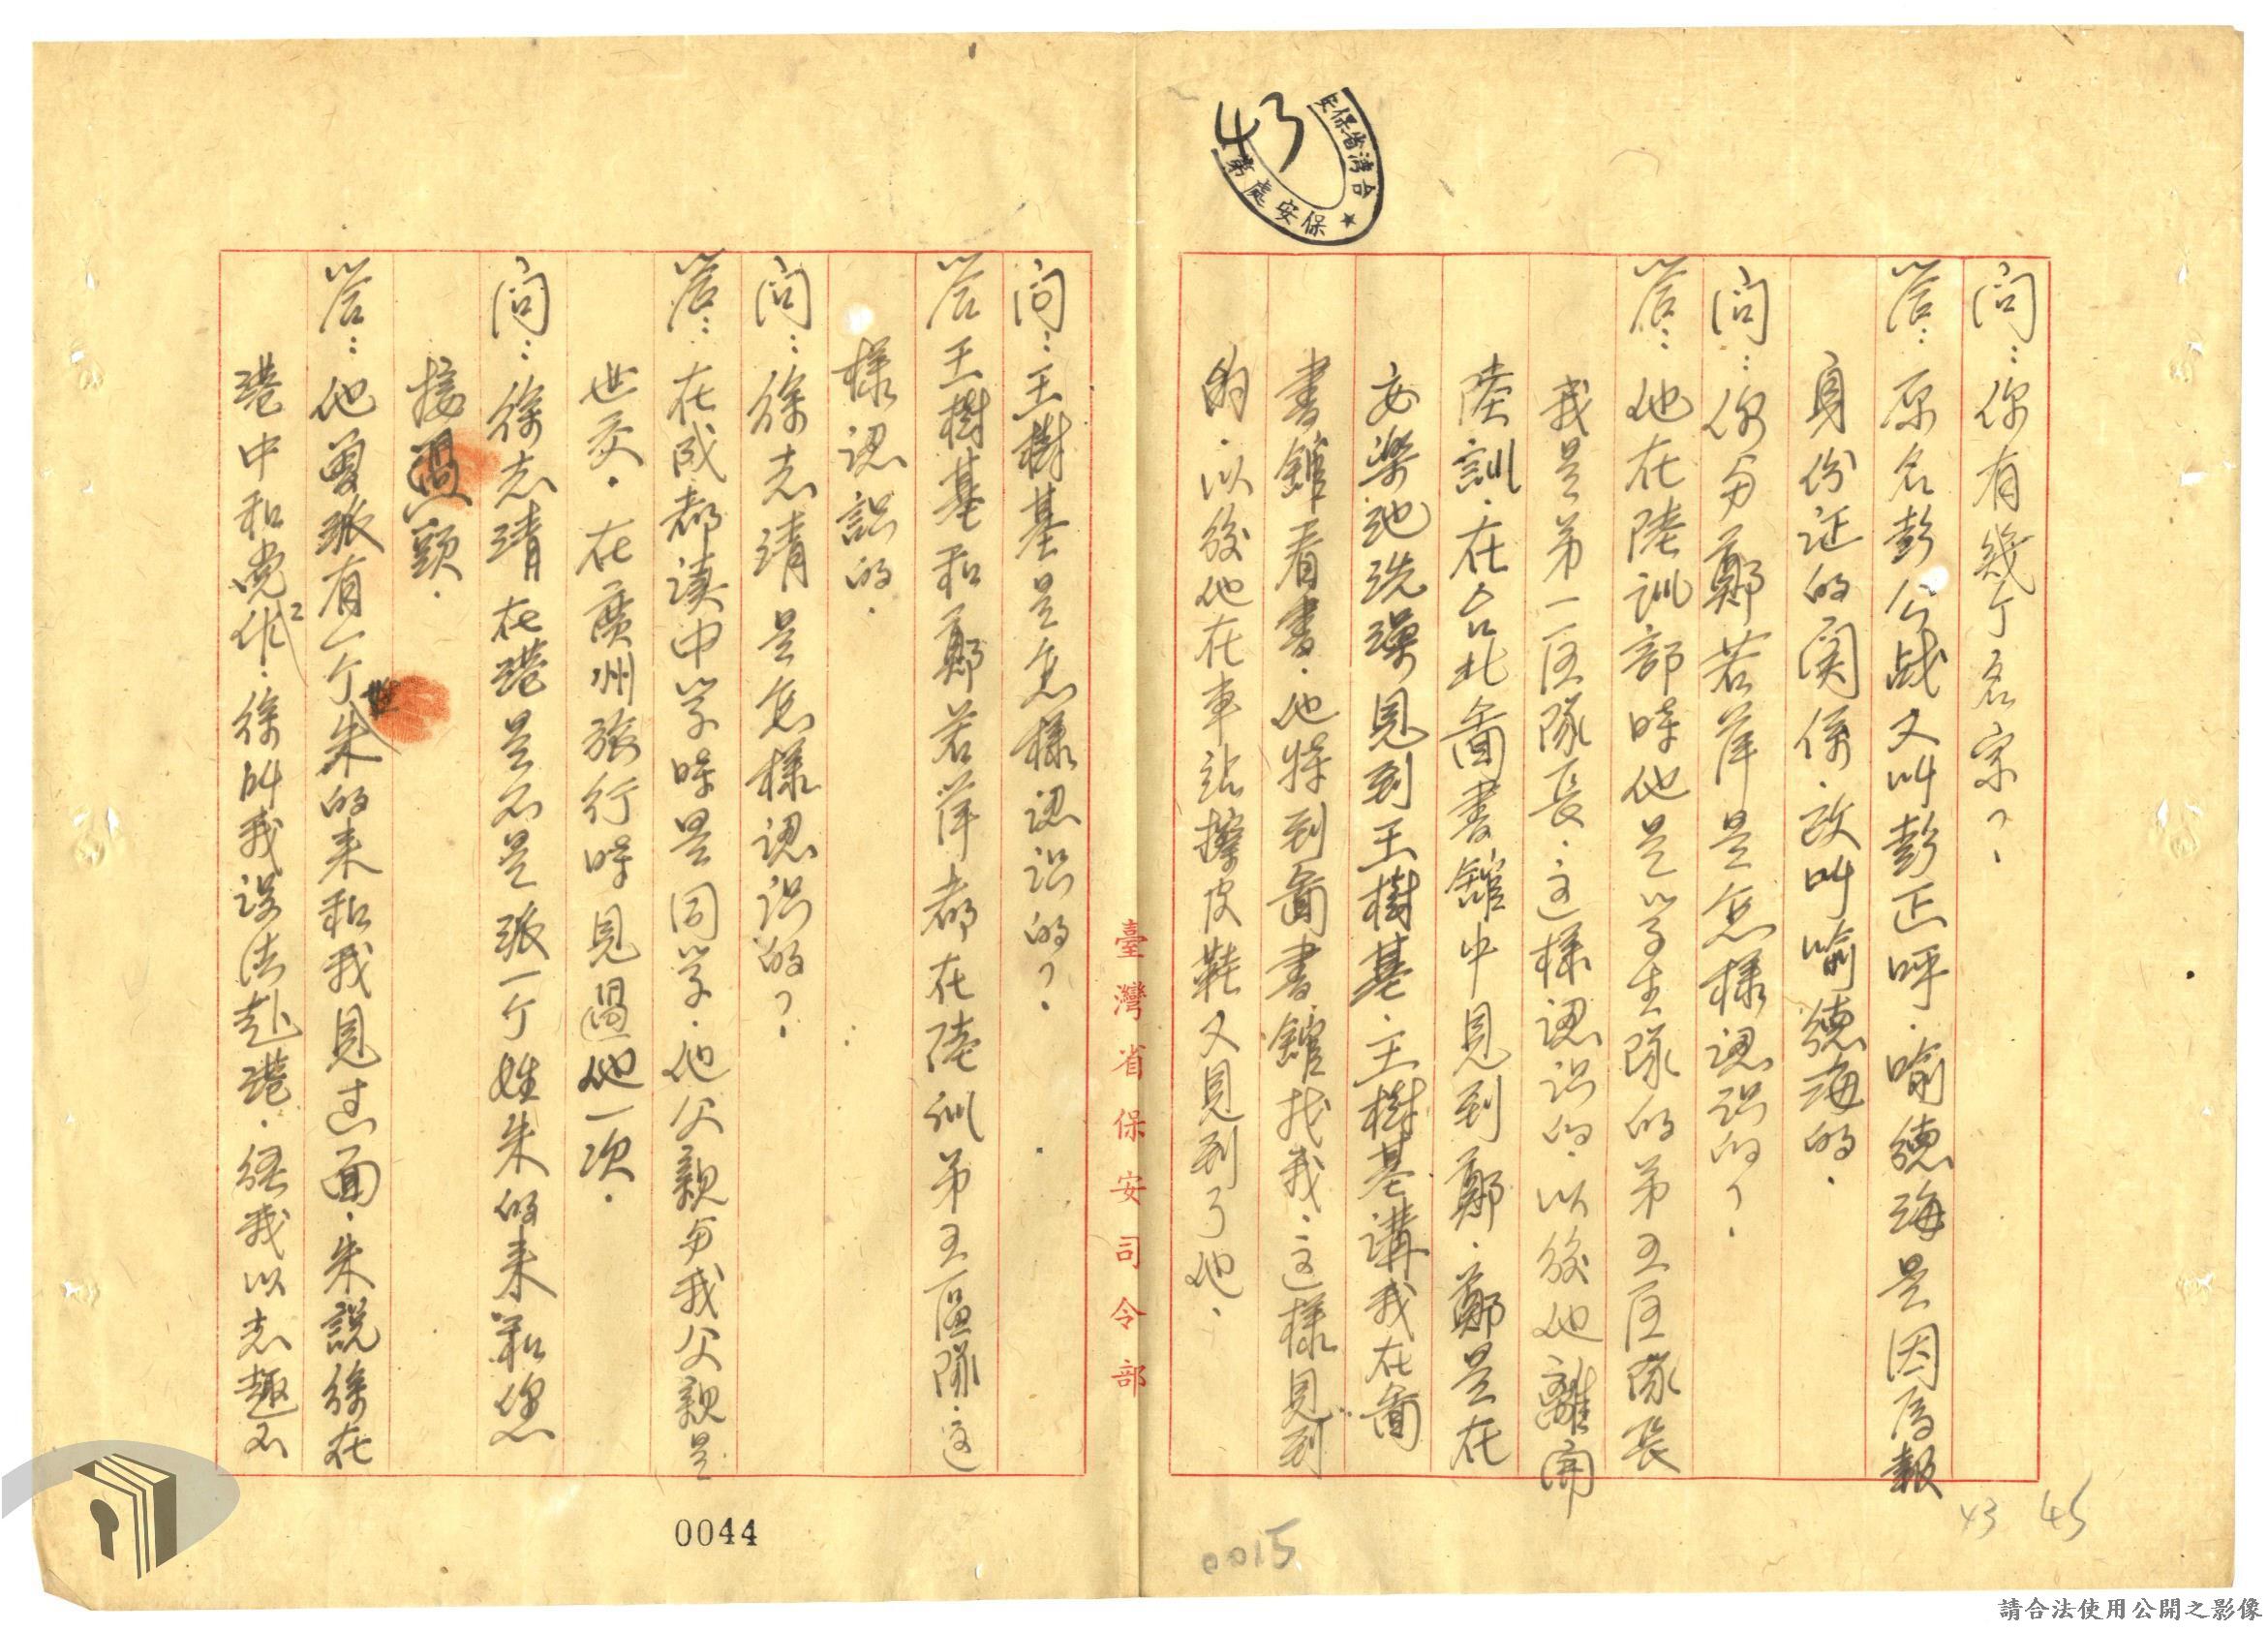 43
台灣省保安
保安處第
問：你有幾个名字？
答：原名彭公战又叫彭正呼．喻德海是因為報
身份证的関係．改叫喻德海的．
問：你与鄭若萍是怎樣認识的？
答：他在陸训部時他是学生隊的第五区隊長
我是第一区隊長．这樣認识的．以後他離開
陸訓．在台北圖書館中見到鄭．鄭是在
安樂池洗澡見到王樹基．王樹基講我在圖
書館看書．他特到圖書館找我．这樣見到
的．以後他在車站擦皮鞋又見到了他．
臺灣省保安司令部
問：王樹基是怎樣認识的？
答 王樹基和鄭若萍都在陸训第五區隊．这
樣認識的．
問：徐志靖是怎樣認识的？
答：在成都讀中学時是同学．他父親与我父親是
世交．在廣州旅行時見過他一次．
問：徐志靖在港是不是派一个姓朱的来和您
接過頭．
答：他曾派有一个朱的来和我見过面．朱說徐在
港中和党作．徐叫我设法赴港．經我以志趣不
0044
0015
43
45
請合法使用公開之影像